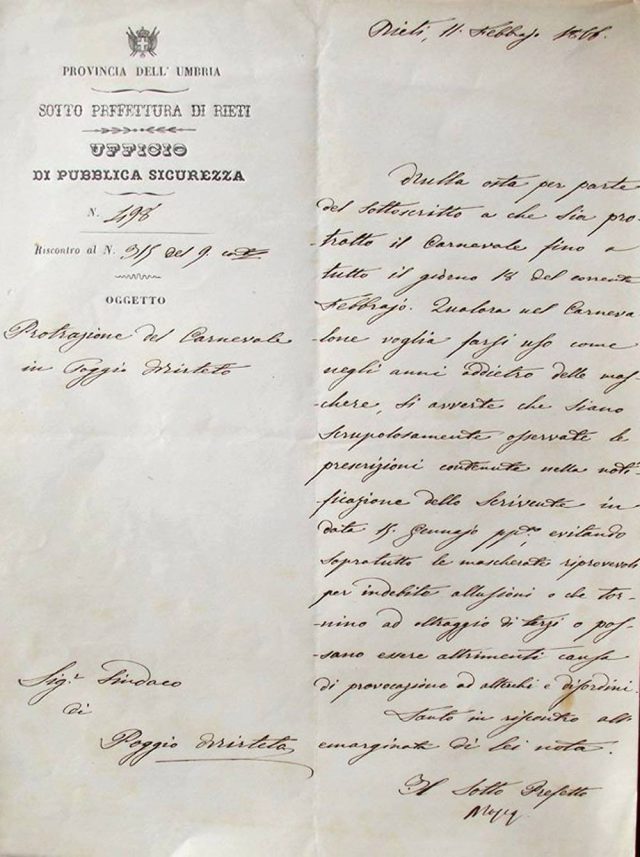 PROVINCIA DELL' UMBRIA
SOTTO PREFETTURA DI RIETI
UFFICIO
DI PUBBLICA SICUREZZA
N. 498
Riscontro al N. 315 del 9. corr.
OGGETTO
Protrazione del Carnevale
in Poggio Mirteto
Sig. Sindaco
di
Poggio Mirteto
Rieti, 11. Febbrajo 1866.
Nulla osta per parte
del sottoscritto a che sia pro-
-tratto il Carnevale fino a
tutto il giorno 18 del corrente
Febbrajo. Qualora nel Carneva
lone voglia farsi uso come
negli anni addietro delle mas
-chere, si avverte che siano
scrupolosamente osservate le
prescrizioni contenute nella noti
-ficazione dello scrivente in
data 15. Gennajo pp.to evitando
sopratutto le mascherate riprovevoli
per indebite allusioni o che tor-
-nino ad oltraggio di terzi o pos-
-sano essere altrimenti causa
di provocazione ad alterchi e disordini
Tanto in riscontro alla
emarginata di lei nota.
Il Sotto Prefetto